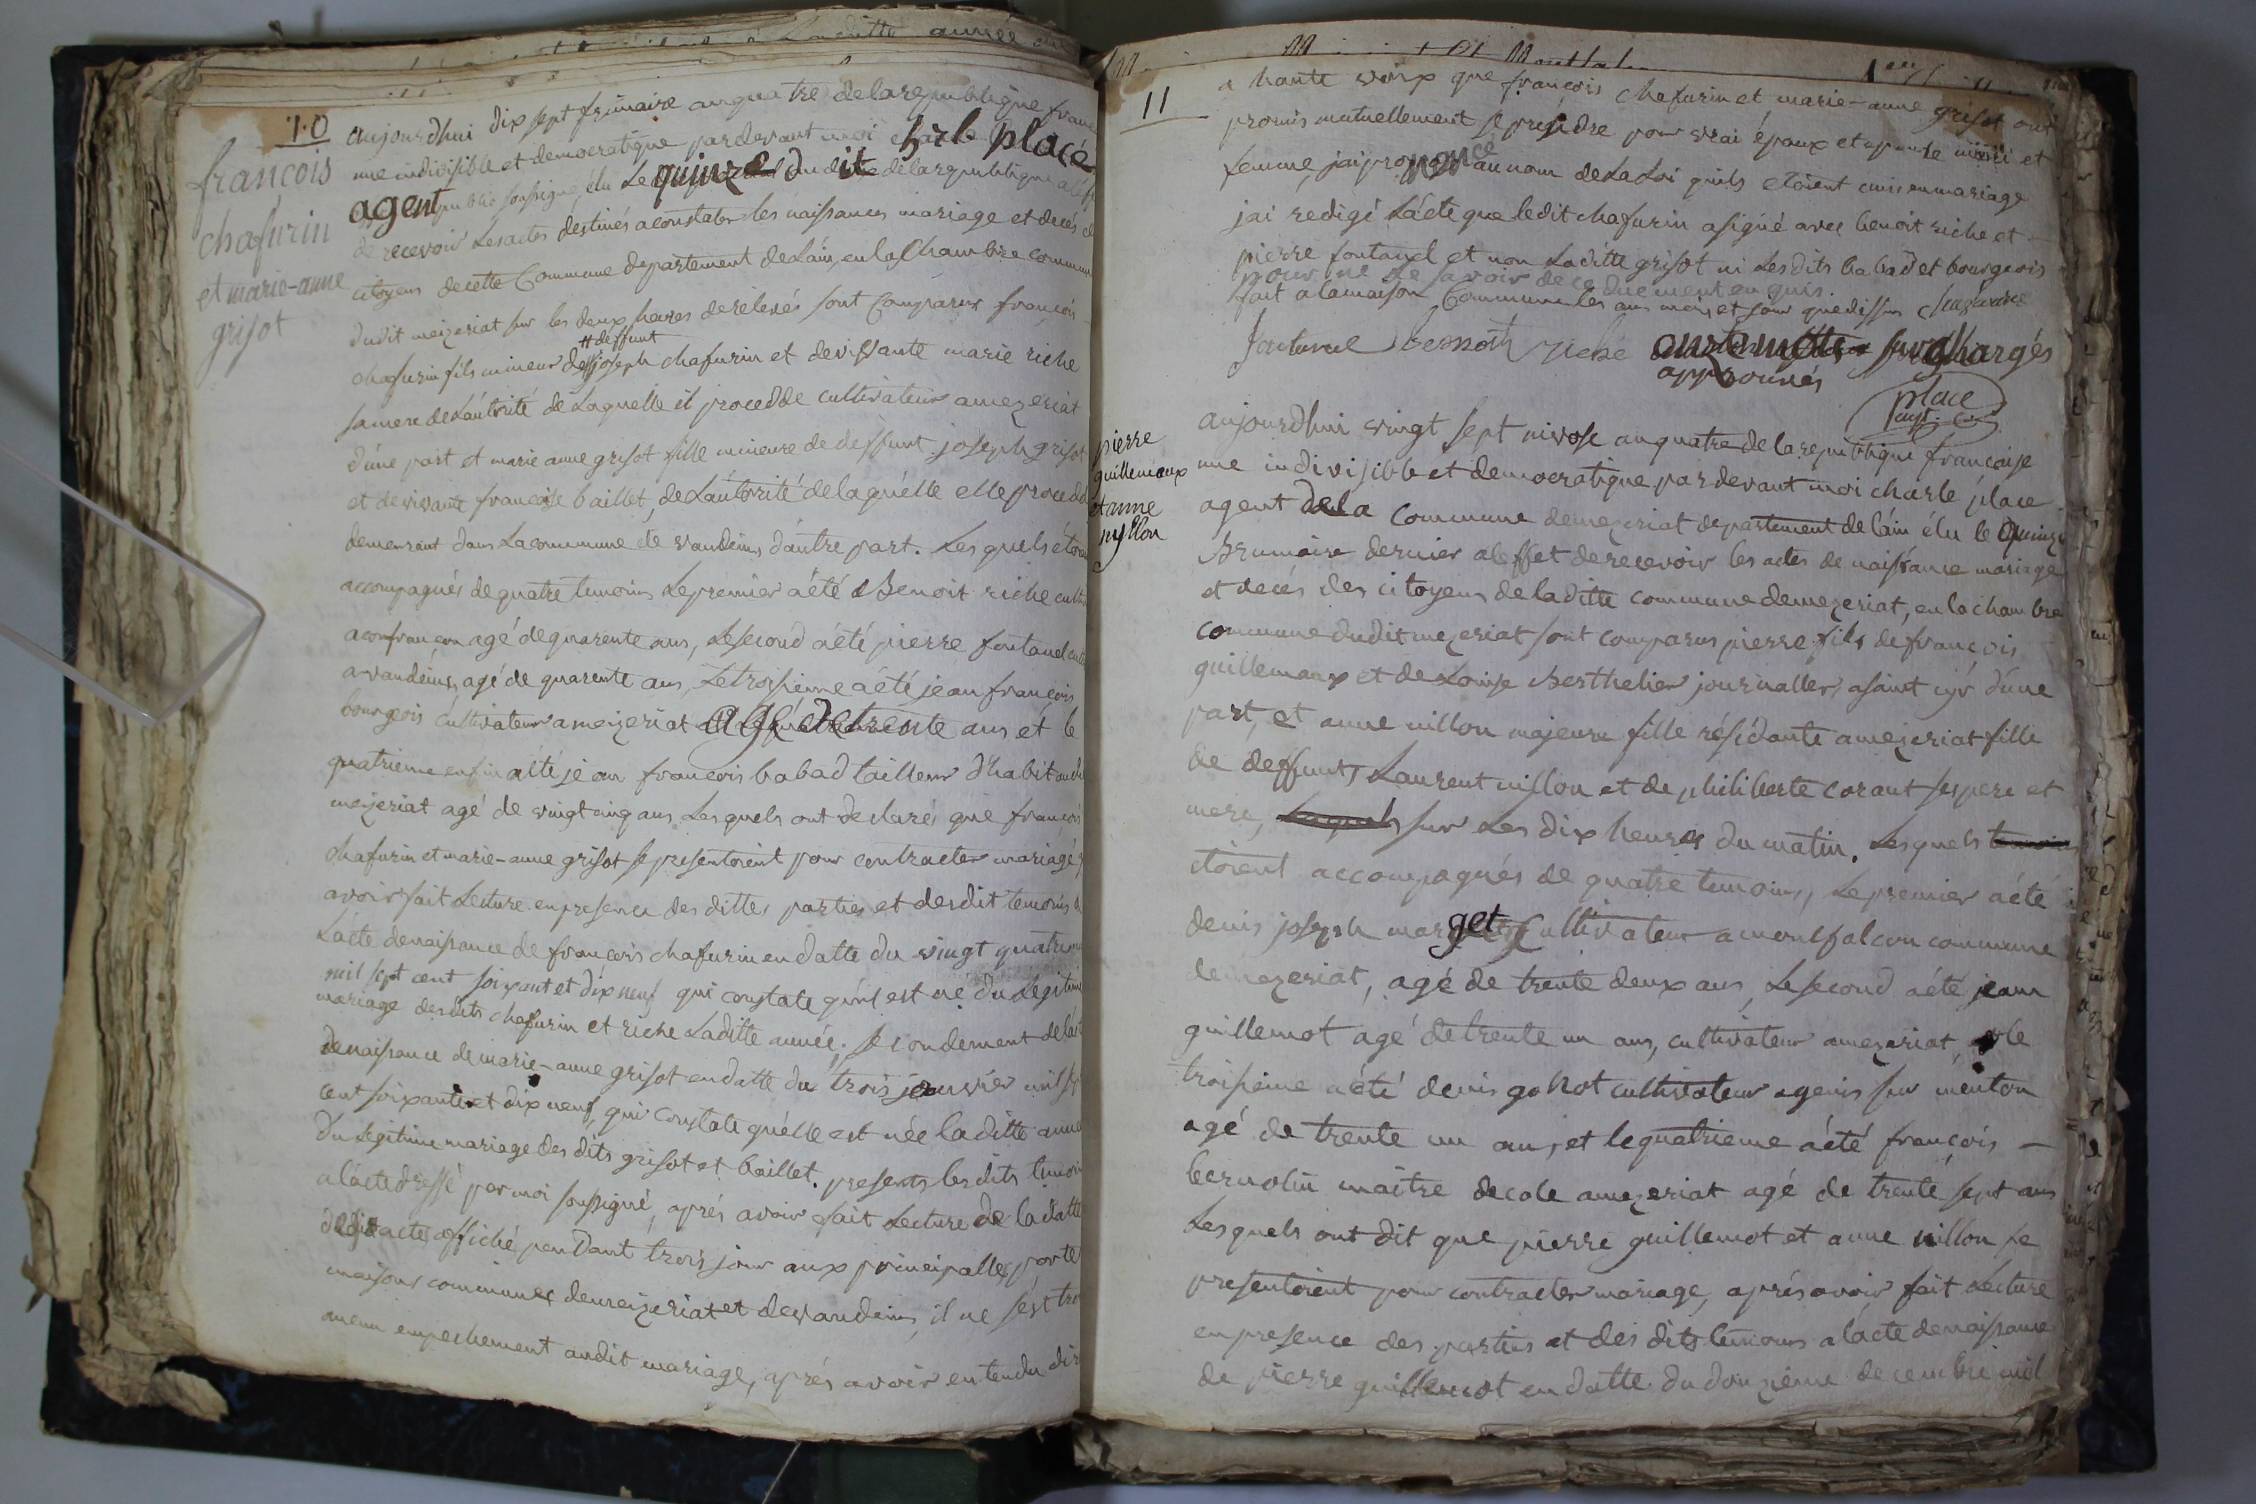 10
françois
chafurin
et marie-anne
grisot
aujourdhui dix sept frimaire an quatre de la republique franc
une indivisible et democratique pardevant moi charle place
agent public soussigné, élu le quinze dudit de la republique a leff
de recevoir les actes destinés a constater les naissances mariage et decés
citoyens de cette Commune departement de Láin, en la Chambre commun
dudit meizeriat sur les deux heures de rélevés sont Comparus françois
deffunt
chafurin fils mineur de joseph chafurin et de vivante marie riche
sa mere de Láutorité de Laquelle il procedde cultivateur a mezeriat
d'une part et marie anne grisot fille mineure de deffunt joseph grisot
et de vivante françoise baillet, de Láutorité de laquélle elle procedde
demeurant dans La commune de vandeins d'autre part. Les quels étoient
accompagnés de quatre temoins Le premier a été Benoit riche culti
a confrançon agé de quarente ans, Le second a été pierre fontanel culti
a vandeins, agé de quarente ans, Le troisieme a été jean françois
bourgeois cultivateur a meizeriat agé de trente ans et le
quatrieme enfin a été jean françois babad tailleur d'habit audit
meizeriat agé de vingt cinq ans Les quels ont declaré que françois
chafurin et marie-anne grisot se presentoient pour contracter mariage
avoir fait Lecture en presence des dittes parties et desdit temoins
L'acte de naissance de françois chafurin en datte du vingt quatre
mil sept cent soixant et dix neuf qui constate qu'il est né du Légitime
mariage desdits chafurin et riche Laditte année. Secondement de láct
de naissance de marie-anne grisot en datte du trois janvier mil sept
cent soixante et dix neuf, qui constate quélle est née laditte anné
Du Legitime mariage des dits grisot et baillet. presents les dits temoin
a lácte dressé par moi soussigné, aprés avoir fait Lecture de la datte
dudit acte affiché pendant trois jour aux principalles porte
maisons communes de meizeriat et de vandeins, il ne s'est trou
aucun empechement audit mariage, aprés avoir entendu dire
11
a haute voix que françois chafurin et marie-anne grisot ont
promis mutuellement se prendre pour vrai époux et epouse mari et
femme, jai prononcé au nom de La Loi quils etoient unis en mariage
jai redigé Lácte que ledit chafurin a signé avec benoit riche et
pierre fontanel et non Laditte grisot ni Les dits babad et bourgeois
pour ne le savoir de ce duement enquis.
fait a la maison Commune les an mois et jour que dessus
fontanel benoit riche onze mots surchargés
approuvés
place
pierre
guillemaux
et anne
nillon
aujourdhui vingt sept nivose an quatre de la republique française
une indivisible et democratique pardevant moi charle place
agent de la commune de mezeriat departement de láin élu le quinze
Brumaire dernier a leffet de recevoir les actes de naissance mariage
et decés des citoyens de la ditte commune de mezeriat, en la chambre
commune dudit mezeriat sont comparus pierre fils de françois
guillemaux et de Louise Berthelier journallier, a saint cyr d'une
part, et anne nillon majeure fille résidante a mezeriat fille
de deffunts Laurent nillon et de philiberte corant ses pere et
mére, sur Les dix heures du matin. Lesquels
étoient accompagnés de quatre temoins, Le premier a été
denis joseph marget cultivateur a montfalcon commune
de mezeriat, agé de trente deux ans, Le second a été jean
guillemot agé de trente un ans, cultivateur a mezeriat, le
troisieme a été denis gonot cultivateur a genis sur menton
agé de trente un ans, et le quatrieme a été françois
bernolin maitre decole a mezeriat agé de trente sept ans
Lesquels ont dit que pierre guillemot et anne nillon se
presentoient pour contracter mariage, aprés avoir fait Lecture
en presence des parties et des dits temoins a lacte de naissance
de pierre guillemot en datte du douzieme decembre mil